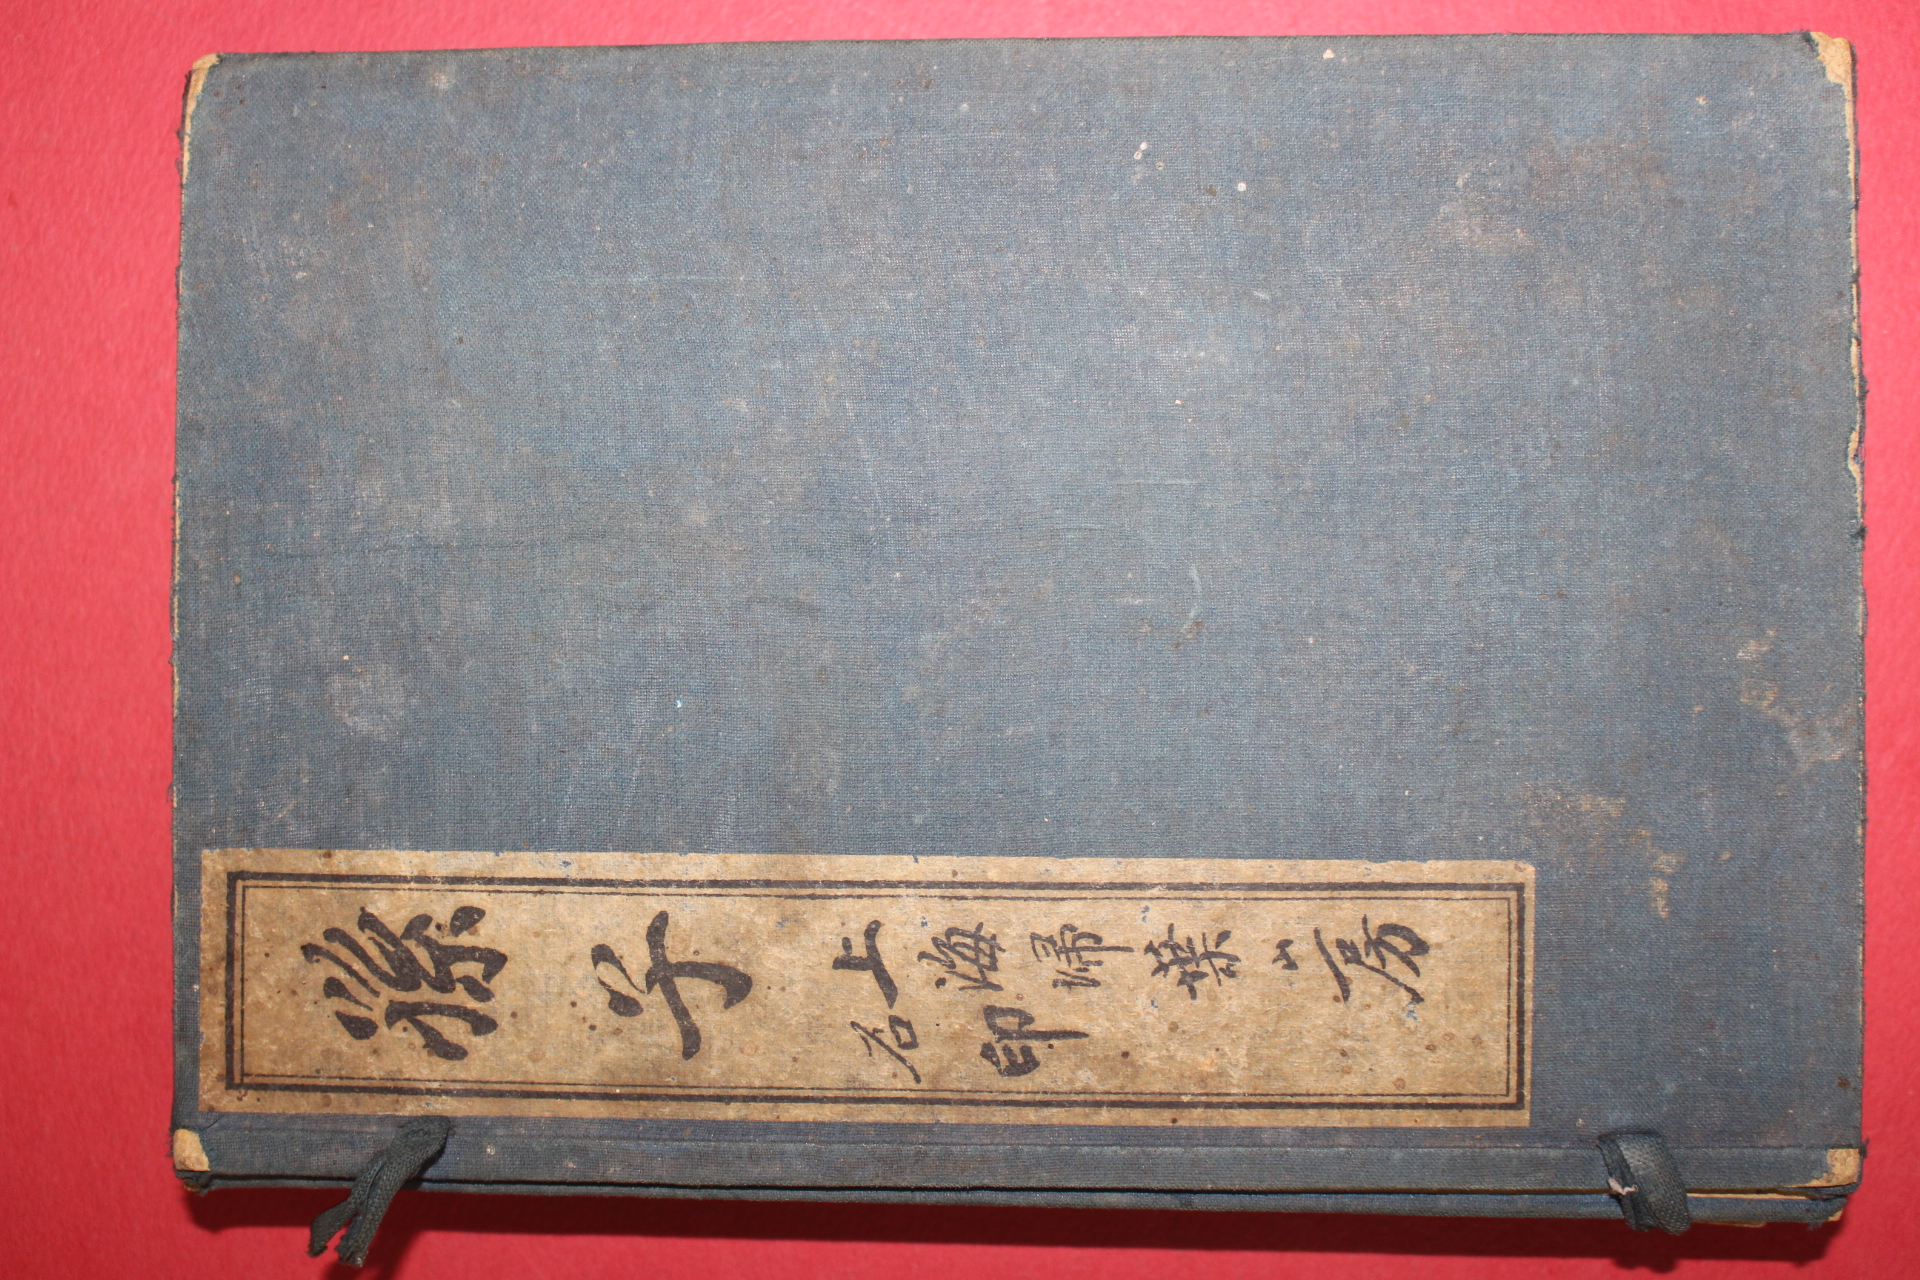 子
上海掃葉山房
石印